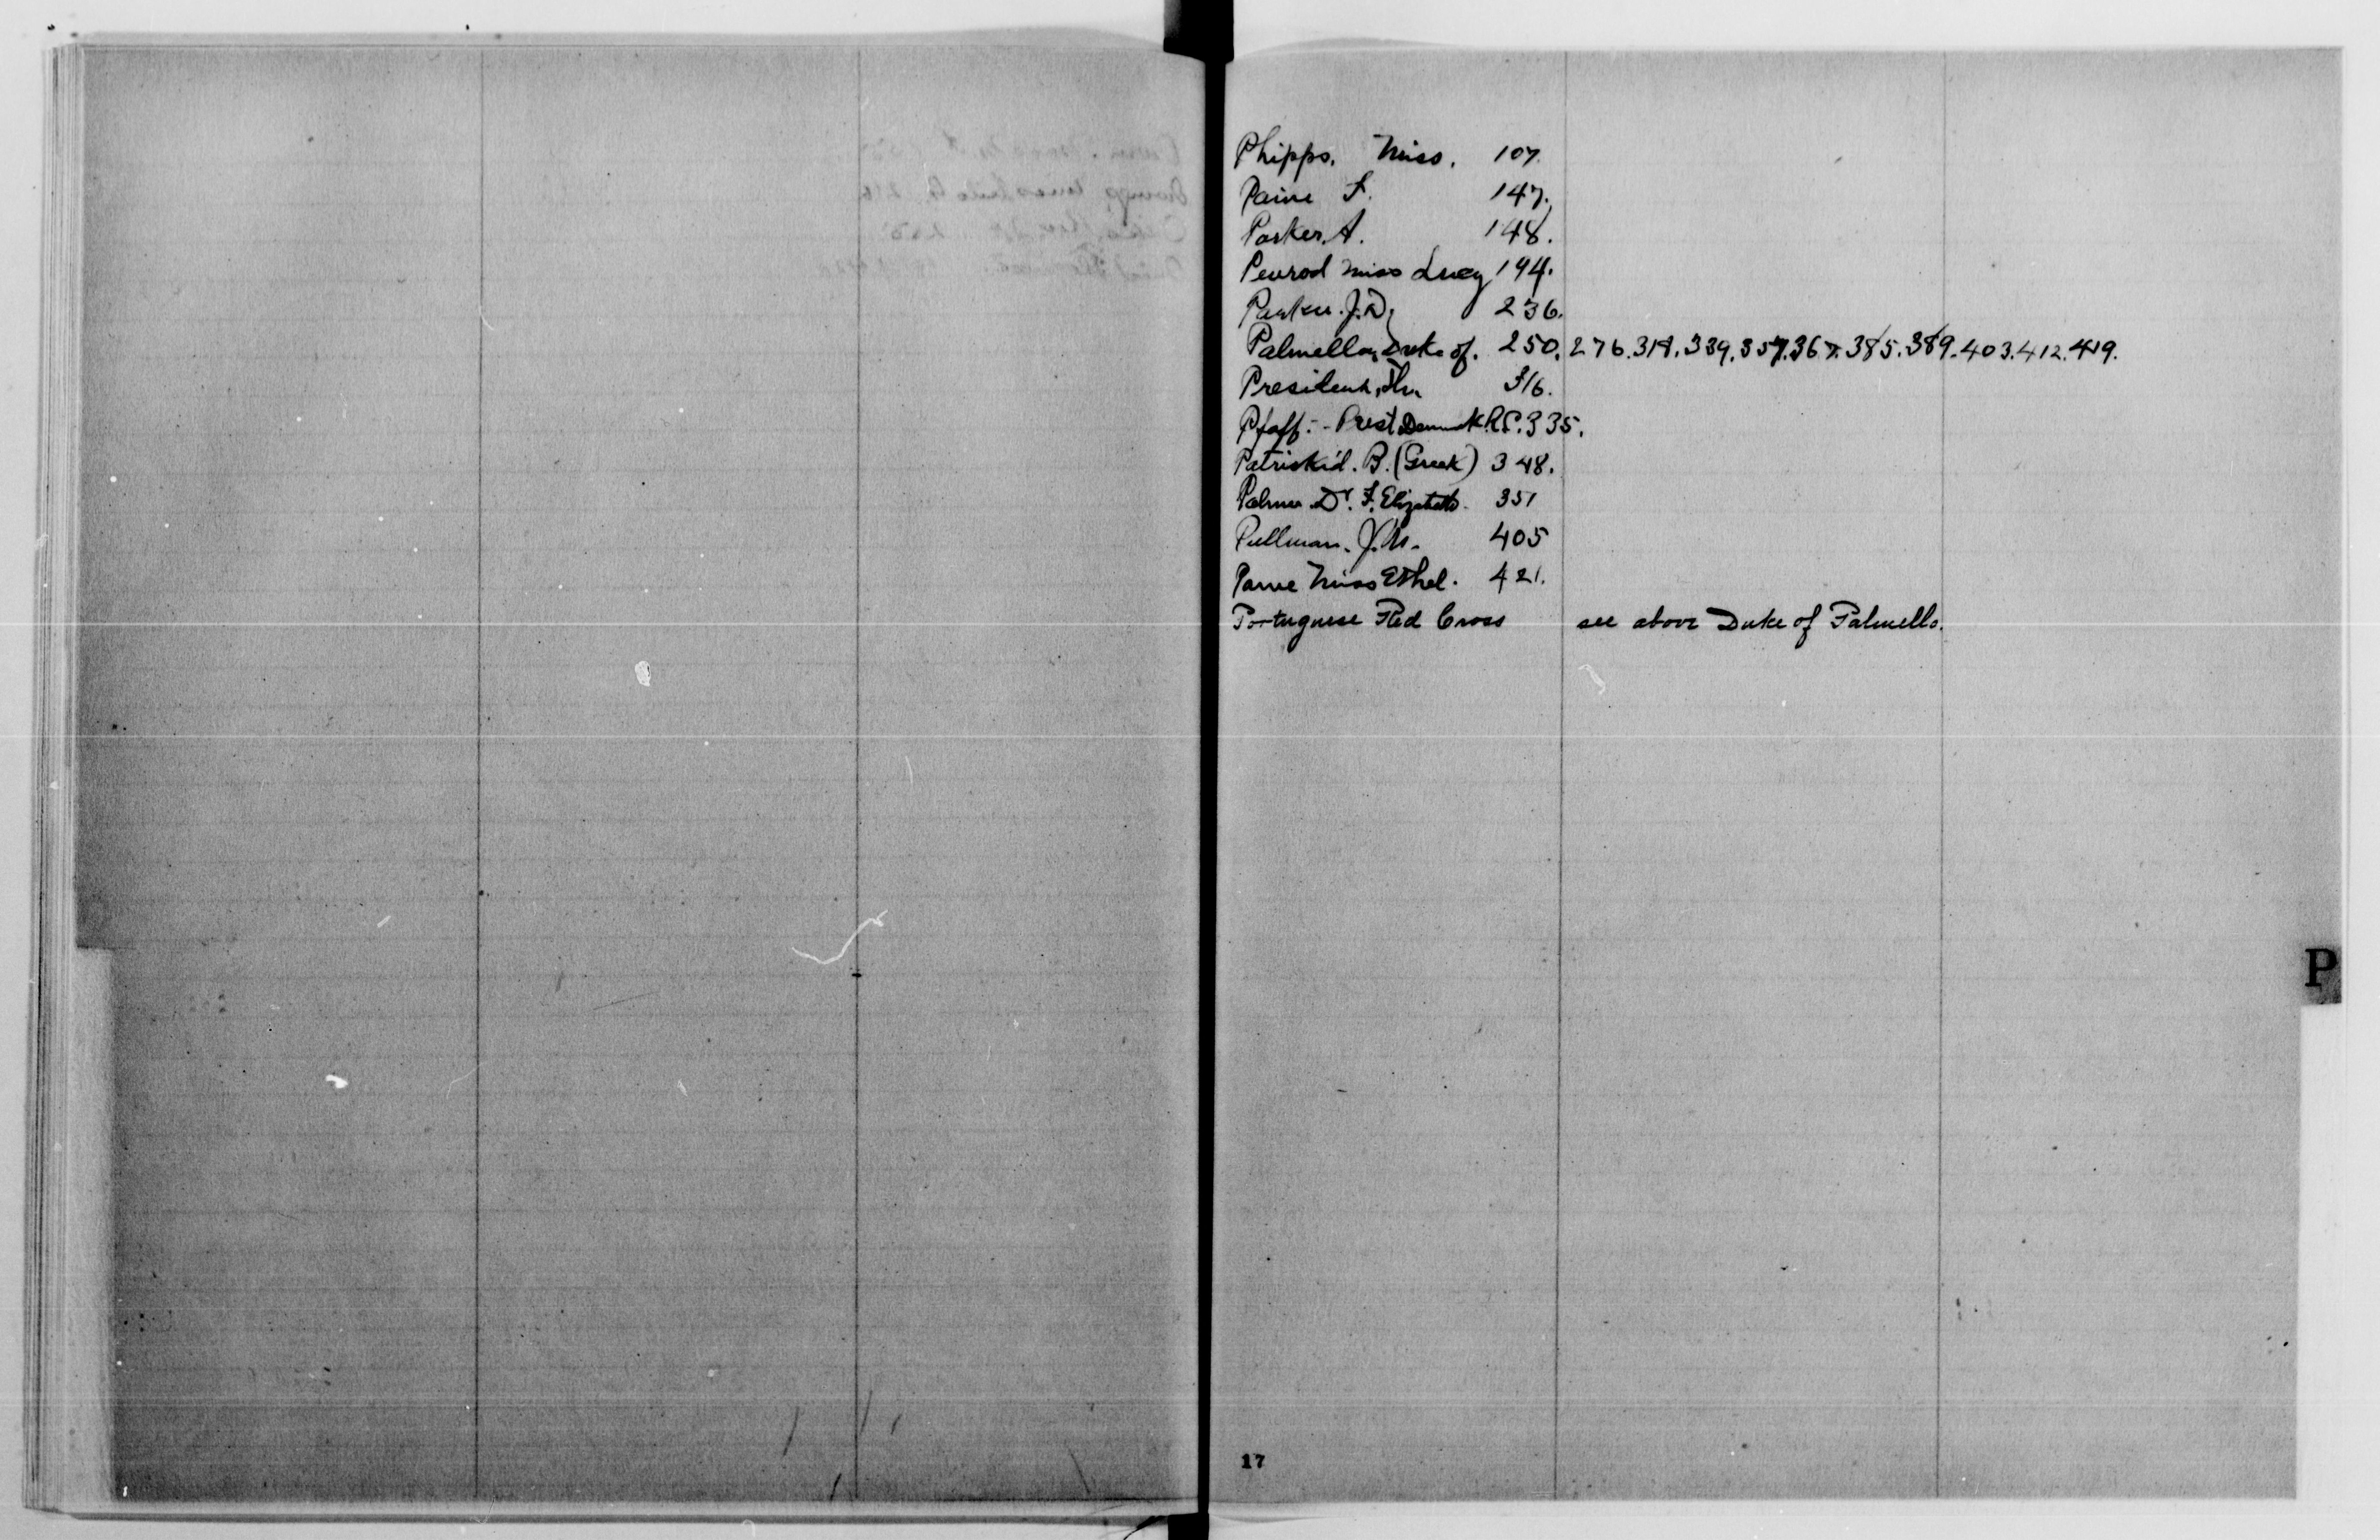 Phipps. Miss. 107.
Paine F. 147.
Parker. A. 148.
Penrod Miss Lucy 194.
Parker. J. D. 236.
Palmella, Duke of. 250. 276. 318. 339. 357. 367. 385. 389. 403. 412. 419.
President, The 316.
Pfaff. - Prest Denmark R.C. 335.
Patriskid. B. (Greek) 348.
Palmer Dr. F. Elizabeth. 351
Pullman. J. M. 405
Paine Miss Ethel. 421.
Portuguese Red Cross see above Duke of Palmella.
P
17